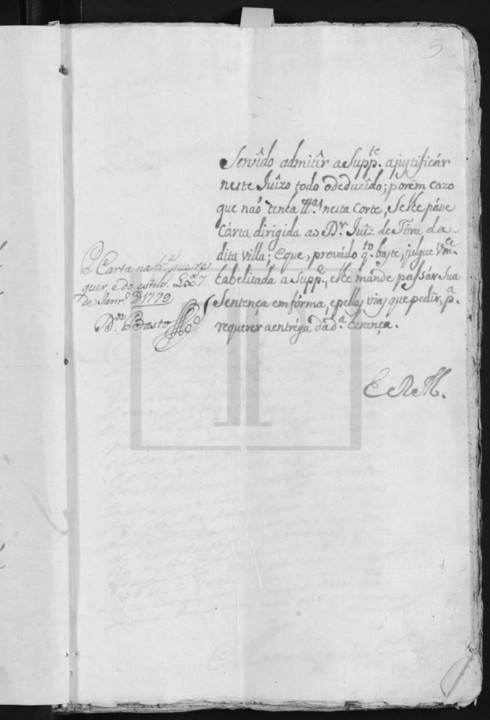 3
Servido admitir a Supp.te a justificár
neste Juizo todo o deduzido; porém cazo
que naõ tenha tt.as nesta Corte, se lhe passe
Cárta dirigida ao D.r Juiz de Fóra da
dita villa; e que, provádo q.to baste, julgue V.m.ce
habelitada a Supp.e, e lhe mande passár Sua
Sentença em fórma, e pellas vias que pedir, p.a
requerer a entrega da d.a herença.
E R M.
P. Carta na fr.a que re
quer e do estillo. Lx.a 7
de Janr.o de 1779
D.or Basto